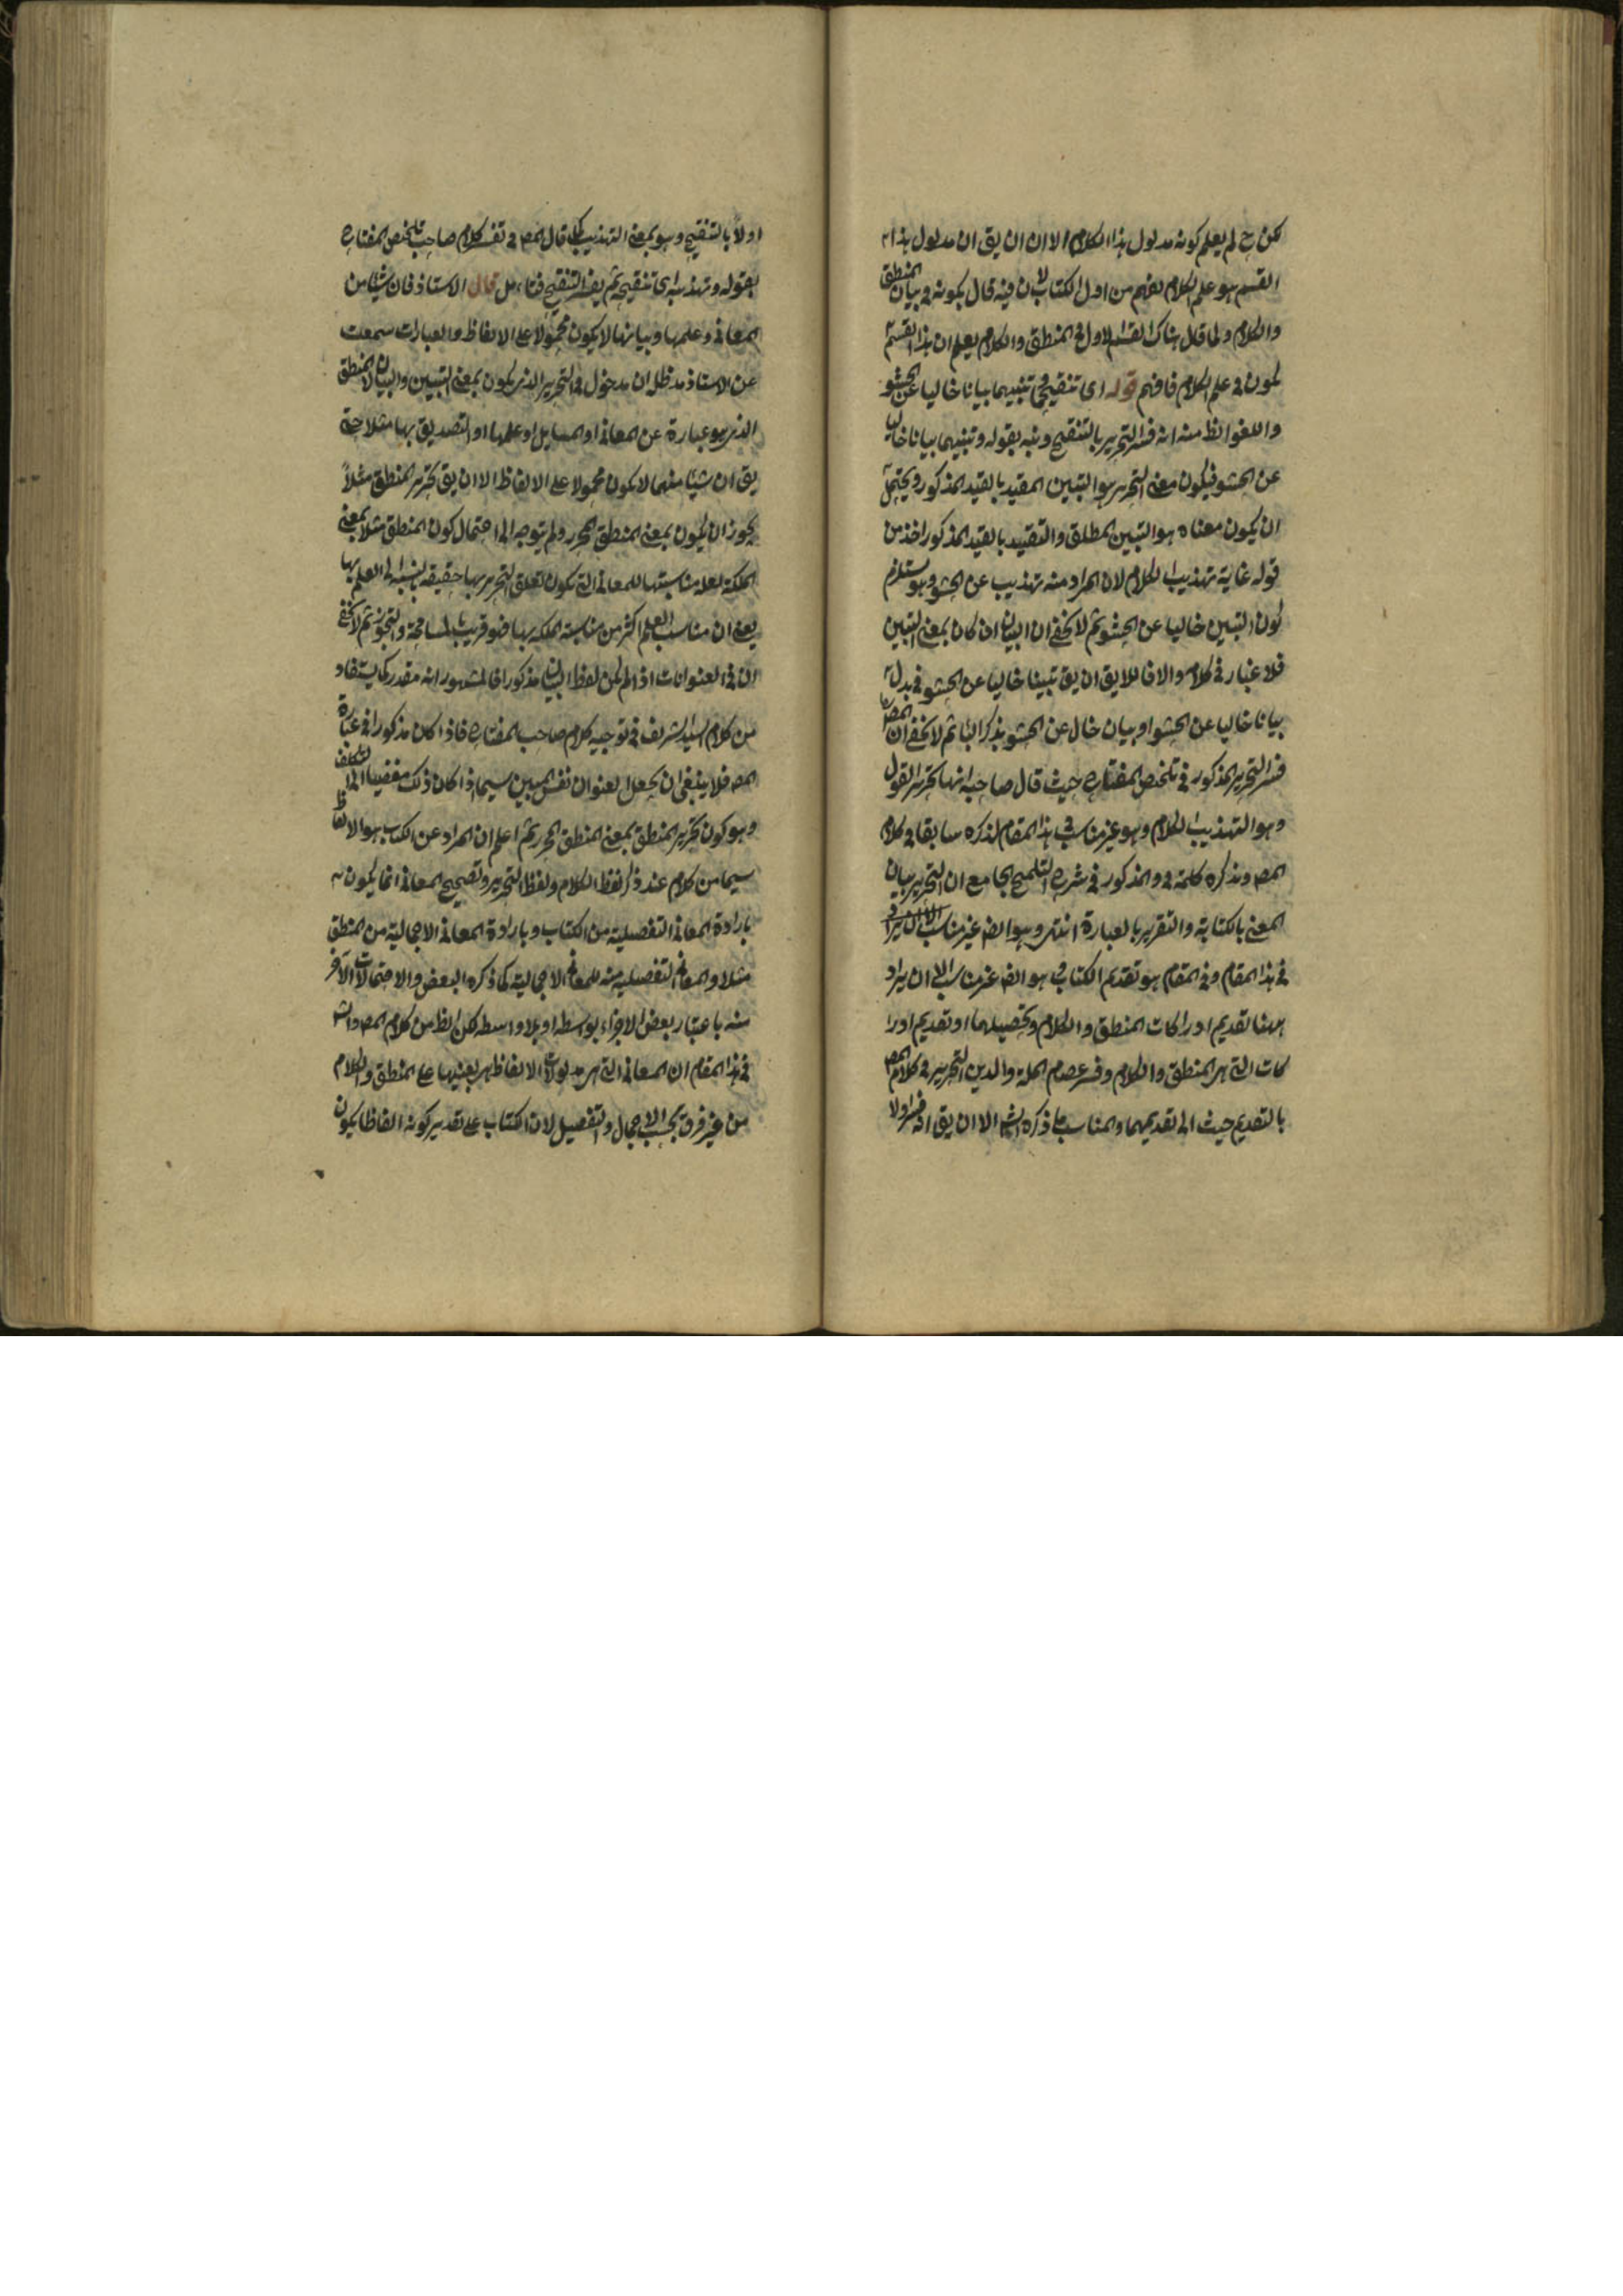 لكن ح لم يعلم كونه مدلول هذا الكلام الا ان ان يق ان مدلول هذا
القسم هو علم الكلام يفهم من اول الكتاب لان فيه قال بكونه في بيان المنطق
والكلام ولما قال هناك القسم الاول في المنطق والكلام يعلم ان هذا القسم
يكون في علم الكلام فافهم قوله اى تنقيحهما تبيهما بيانا خاليا عن الحشو
واللغو الظ منه انه فسر التحرير بالتنقيح ونبه بقوله وتبيهما بيانا خاليا
عن الحشو فيكون معنى التحرير هو التبين المقيد بالقيد المذكور ويحتمل
ان يكون معناه هو التبين المطلق والتقييد بالقيد المذكور اخذ من
قوله غاية تهذيب الكلام لان المراد منه تهذيب عن الحشو وهو مستلزم
لكون التبين خاليا عن الحشو ثم لا يخفى ان البيان ان كان بمعنى التبين
فلا غبار في كلامه والا فاللايق ان يق تبيينا خاليا عن الحشو في بدل
بيانا خاليا عن الحشو او بيان خال عن الحشو بذكر الباء ثم لا يخفى ان المص
فسر التحرير المذكور في تلخيص المفتاح حيث قال صاحبه انها تحرير القول
وهو التهذيب الكلام وهو غير مناسب في هذا المقام لذكره سابقا في كلام
المص وذكره كلمة في والمذكور في شرح التلميح الجامع ان التحرير بيان
المعنى بالكتابة والتقرير بالعبارة انتهى وهو ايضا غير مناسب
في هذا المقام وفي المقام هو تقديم الكتاب في هو ايض غير مناسب الا ان يراد
ههنا تقديم ادراكات المنطق والكلام وتحصيلهما او تقديم ادرا
كات التي هي المنطق والكلام وفسر عصام الملة والدين التحرير في كلام المص
بالتقديم حيث الى تقديمهما والمناسب ما ذكره الش الا ان يق انه فسر اولا
اولا بالتنقيح وهو بمعنى التهذيب كما قال المص في تفسير كلام صاحب تلخيص المفتاح
بقوله وتهذيبه اى تنقيحه ثم يفسر التنقيح فتامل قال الاستاذ فان شيئا من
المعاني وعلمها وبيانها لا يكون محمولا على الالفاظ والعبارات سمعت
عن الاستاذ مد ظله ان مدخول في التحرير الذي يكون بمعنى التبيين والبيان لا المنطق
الذي هو عبارة عن المعاني او المسايل او علمها او التصديق بها مثلا حتى
يق ان شيئا منهما لا يكون محمولا على الالفاظ الا ان يق تحرير المنطق مثلا
يجوز ان يكون بمعنى المنطق المحرر ولم يتوجه الى احتمال كون المنطق مثلا بمعنى
الملكة لعله مناسبتها للمعاني التي يكون تعلق التحرير بها حقيقة بالنسبة الى العلم بها
يعنى ان مناسب العلم اكثر من مناسبة الملكة بها فهو قريب بالمسامحة والتجوز ثم لا يخفى
ان في العنوانات اذا لم يكن لفظ البيان مذكورا فالمشهور انه مقدر كما يستفاد
من كلام السيد الشريف في توجيه كلام صاحب المفتاح فاذا كان مذكورا في عبارة
المص فلا ينبغى ان يجعل العنوان نفس المبين سيما اذا كان ذلك مفضيا الى التكلف
وهو كون تحرير المنطق بمعنى المنطق المحرر ثم اعلم ان المراد عن الكتاب هو الالفاظ
سيما من كلام عند ذكر لفظ الكلام ولفظ التحرير وتصحيح المعاني انما يكون
بارادة المعاني التفصيلية من الكتاب وبارادة المعاني الاجمالية من المنطق
مثلا والمعاني التفصيلية منه للمعاني الاجمالية كما ذكره البعض والاحتمالات الاخر
منه باعتبار بعض الاجزاء بواسطه او بلا واسطه لكن الظ من كلام المص والش
في هذا المقام ان المعاني التي هي مدلولات الالفاظ هى بعينها على المنطق والكلام
من غير فرق بحسب الاجمال والتفصيل لان الكتاب على تقدير كونه الفاظا يكون